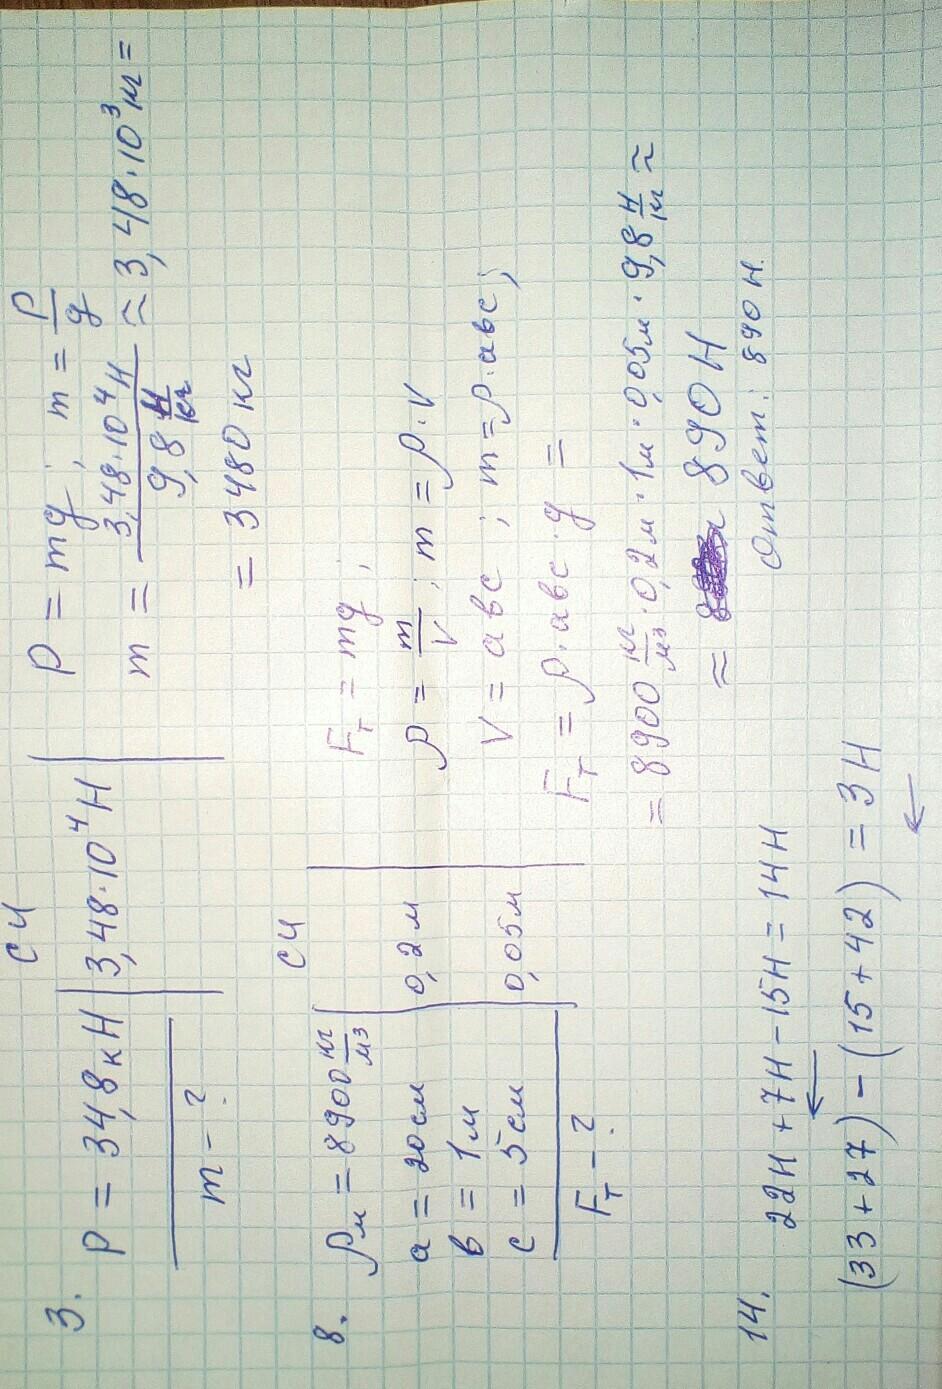 3.
P = 34,8 кН
СИ
3,48·10⁴ Н
m - ?
P = mg; m = P/g
m = 3,48·10⁴ Н / 9,8 Н/кг ≈ 3,48·10³ кг =
= 3480 кг
8.
ρм = 8900 кг/м³
a = 20 см
в = 1 м
c = 5 см
СИ
0,2 м
0,05 м
Fт - ?
Fт = mg;
ρ = m/V; m = ρ·V
V = авс; m = ρ·авс;
Fт = ρ·авс·g =
= 8900 кг/м³·0,2м·1м·0,05м·9,8 Н/кг ≈
≈ 890 Н
Ответ: 890 Н.
14.
22Н + 7Н - 15Н = 14Н
←
(33 + 27) - (15 + 42) = 3Н
←